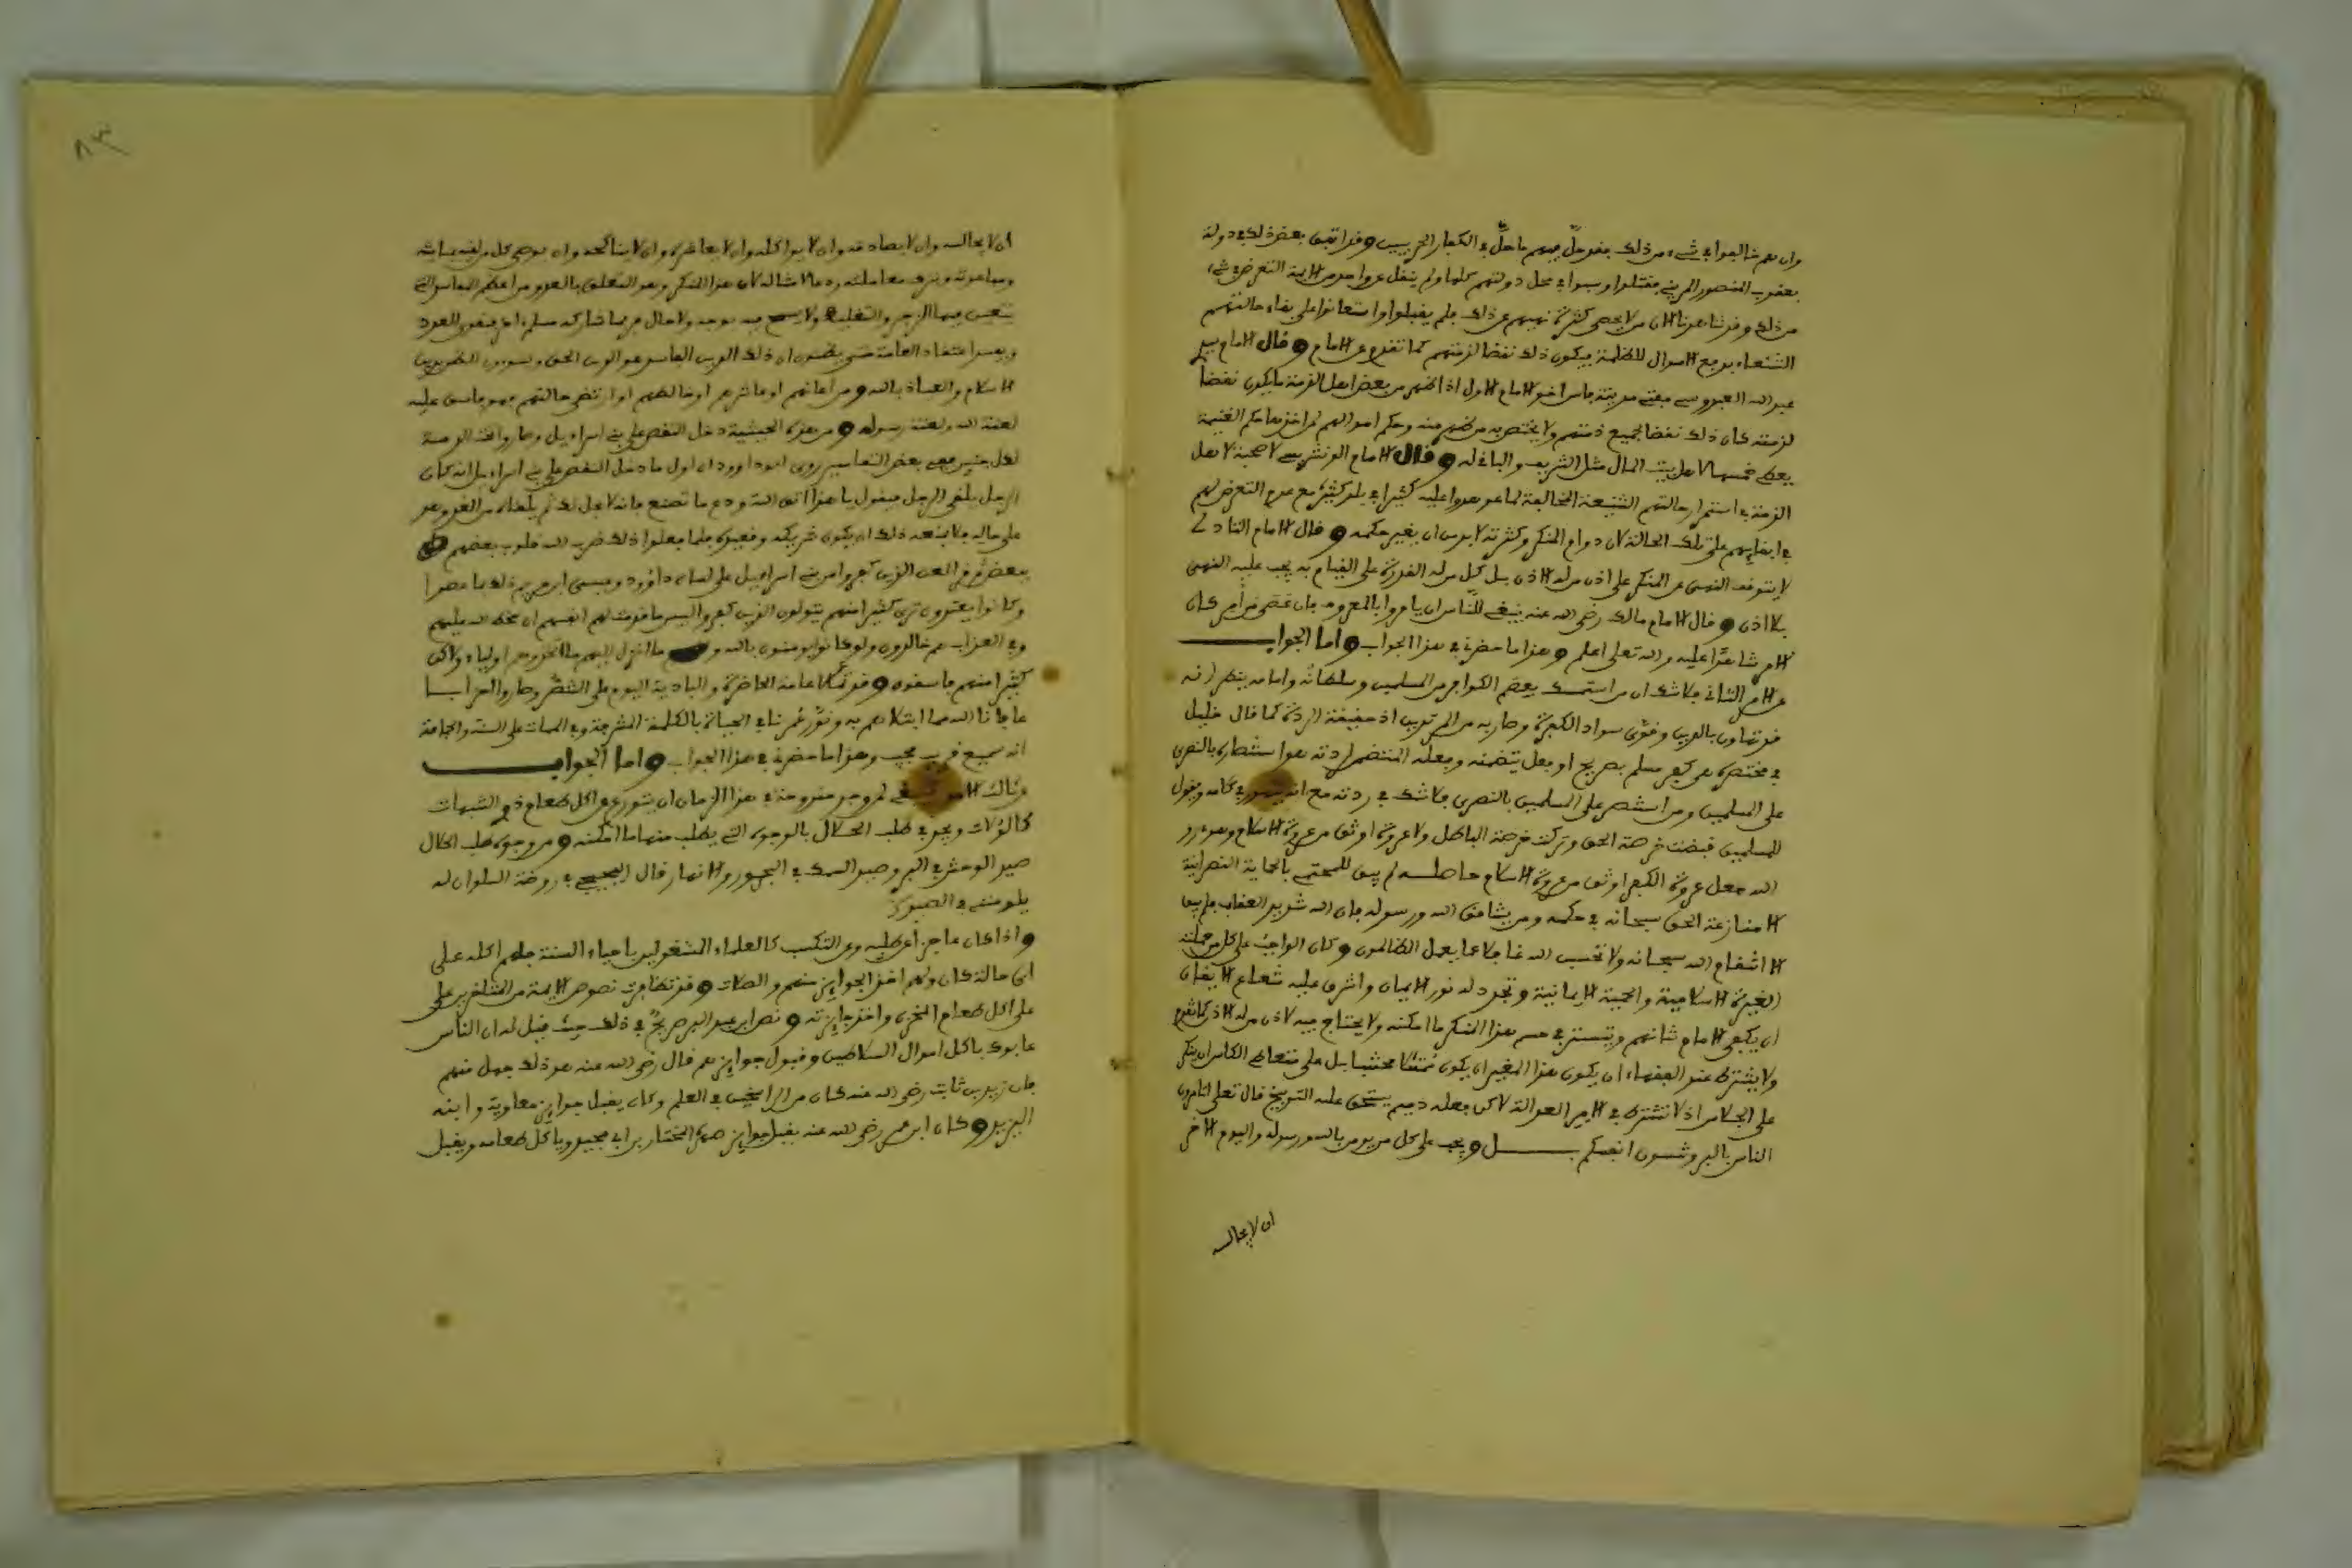 وان هم خالفوا في شيء من ذلك بقد حل بهم ما حل بالكفار الحربيين وقد اتفق بعض ذلك في دولة
يعقوب المنصور المريني فقتلوا وسبوا في محل دولتهم كلها ولم ينقل عن واحد من الائمة التعرض في شيء
من ذلك وقد شاهدنا الان من لا يحصى كثرة نهيهم عن ذلك فلم يقبلوا واستعانوا على بقاء حالتهم
الشنعاء بدفع الاموال للظلمة فيكون ذلك نقضا لذمتهم كما تقدم عن الامام وقال الامام سيد
عبد الله العبدوسي مفتي مدينة فاس اخو الامام الاول اذا ظهر من بعض اهل الذمة ما يكون نقضا
لذمته كان ذلك نقضا لجميع ذمتهم ولا يختص به من ظهر منه وحكم اموالهم ان اخذها حكم الغنيمة
يعطى خمسها لاهل بيت المال مثل الشريف والباقي له وقال الامام الونشريسي لا صحبة لاهل
الذمة في استمرار حالتهم الشنيعة المخالفة لما عوهدوا عليه كثيرا في بلد كثير مع عدم التعرض لهم
في ابقائهم على تلك الحالة لان دوام المنكر وكثرته لا بد من ان يغير حكمه وقال الامام التادلي
لا يتوقف النهي عن المنكر على اذن من له الاذن بل كل من له القدرة على القيام به يجب عليه النهي
بلا اذن وقال الامام مالك رضي الله عنه ينبغي للناس ان يامروا بالمعروف فان عصي من امر كان
الامر شاهدا عليه والله تعلى اعلم وهذا ما حضرني في هذا الجواب واما الجواب
عن الامر الثاني فلا شك ان من استمسك ببعض الكوافر من المسلمين وسلطانه وامامه ينظر انه
قد تهاون بالدين وقوى سواد الكفرة وصار به من المرتدين اذ حقيقة الردة كما قال خليل
في مختصره هي كفر مسلم بصريح او فعل يتضمنه وفعله المتضمن لردته هو استنصاره بالنصرى
على المسلمين ومن استنصر على المسلمين بالنصرى فلا شك في ردته مع انه في كلامه ويقول
للمسلمين قبضت فرصة الحق وتركت فرصة الباطل ولا عروة اوثق من عروة الاسلام وهو
الله جعل عروة الكفر اوثق من عروة الاسلام حاصله لم يبق للمحتمي بالحماية النصرانية
الا منازعة الحق سبحانه في حكمه ومن يشاقق الله ورسوله فان الله شديد العقاب فلم يبق
الا انتقام الله سبحانه ولا تحسبن الله غافلا عما يعمل الظالمون وكان الواجب على كل من حملته
الغيرة الاسلامية والحمية الايمانية وتجرد له نور الايمان واشرق عليه شعاع الايقان
ان يكفي الامام شانهم ويتسبب في حسم هذا المنكر ما امكنه ولا يحتاج فيه لاذن من له الاذن كما تقدم
ولا يشترط عند الفقهاء ان يكون هذا المغير ان يكون ممتثلا مجتنبا بل على متعاطي الكاس ان ينكر
على الجلاس اذ لا تشترط في الامر العدالة لاكن فعله ذميم يستحق عليه التوبيخ قال تعلى اتامرون
الناس بالبر وتنسون انفسكم بل ويجب على كل من يومن بالله ورسوله واليوم الاخر
ان لا يجالسه
٨٣
ان لا يجالسه وان لا يصادقه وان لا يواكله وان لا يعاشره وان لا يناكحه وان يوصي كل من لقيه بمباينته
ومباعدته وترك معاملته ردعا لامثاله لان هذا المنكر وهو التعلق بالعدو من اعظم المفاسد التي
يتعين فيها الزجر والتغليظ ولا يسمح فيه بوجه ولا حال فربما شاركه مسلم اخر فيقوى العدو
ويفسد اعتقاد العامة حتى يظنون ان ذلك الدين الفاسد هو الدين الحق ويسوون الظن بدين
الاسلام والعياذ بالله ومن اعانهم او عاشرهم او خالطهم او ارتضى حالتهم فهو فاسق عليه
لعنة الله ولعنة رسوله ومن هذه الحيثية دخل النقص على بني اسراءيل وصاروا تحت الذمة
لكل جنس ففي بعض التفاسير روى ابو داوود ان اول ما دخل النقص على بني اسراءيل انه كان
الرجل يلقى الرجل فيقول يا هذا اتق الله ودع ما تصنع فانه لا يحل لك ثم يلقاه من الغد وهو
على حاله فلا يمنعه ذلك ان يكون شريكه وقعيده فلما فعلوا ذلك ضرب الله قلوب بعضهم
ببعض ثم قرأ لعن الذين كفروا من بني اسراءيل على لسان داوود وعيسى ابن مريم ذلك بما عصوا
وكانوا يعتدون ترى كثيرا منهم يتولون الذين كفروا لبيس ما قدمت لهم انفسهم ان سخط الله عليهم
وفي العذاب هم خالدون ولو كانوا يومنون بالله و ما انزل اليهم ما اتخذوهم اولياء ولاكن
كثيرا منهم فاسقون وقد تمالا عامة الحاضرة والبادية اليوم على الشر وصاروا احزابا
عافانا الله مما ابتلاهم به ونور غرتنا في الحياة بالكلمة المشرفة وفي الممات على السنة والجماعة
انه سميع قريب مجيب وهذا ما حضرني في هذا الجواب واما الجواب
وثالث لمن وجد مندوحة في هذا الزمان ان يتورع عن اكل طعام ذوي الشبهات
كالولات ويجد في طلب الحلال بالوجوه التي يطلب منها ما امكنه ومن وجوه طلب الحلال
صيد الوحش في البر وصيد السمك في البحور والانهار قال الفجيجي في روضة السلوان له
يلومني في الصيد
واذا كان عاجزا عن طلبه وعن التكسب كالعلماء المشغولين باحياء السنة فلهم اكله على
اي حالة كان ولهم اخذ الجوايز منهم والصلات وقد تظاهرت نصوص الايمة من المتاخرين على
على اكل طعام المخزن واخذ جايزته ونص ابن عبد البر صريح في ذلك حيث قيل له ان الناس
عابوك باكل اموال السلاطين وقبول جوايزهم قال رضي الله عنه هو ذلك جهل منهم
فان زيد بن ثابت رضي الله عنه كان من الراسخين في العلم وكان يقبل جوايز معاوية وابنه
اليزيد وكان ابن عمر رضي الله عنه يقبل جوايز صهره المختار بن ابي عبيد وياكل طعامه ويقبل